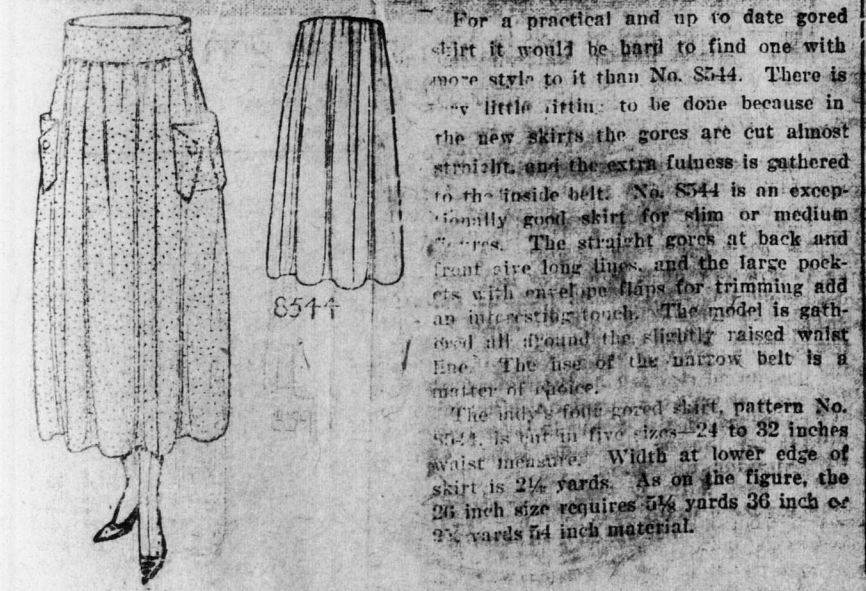 For a practical and up to date gored
skirt it would be hard to find one with
more style to it than No. 8544. There is
little fitting to be done because in
the new skirts the gores are cut almost
straight, and the extra fulness is gathered
to the inside belt. No. 8544 is an excep-
tionally good skirt for slim or medium
figures. The straight gores at back and
front give long lines, and the large pock-
ets with envelope flaps for trimming add
an interesting touch. The model is gath-
ered all around the slightly raised waist
line. The use of the narrow belt is a
matter of choice.
The lady's four gored skirt, pattern No.
8544, is cut in five sizes—24 to 32 inches
waist measure. Width at lower edge of
skirt is 2¼ yards. As on the figure, the
26 inch size requires yards 36 inch or
yards 54 inch material.
8544